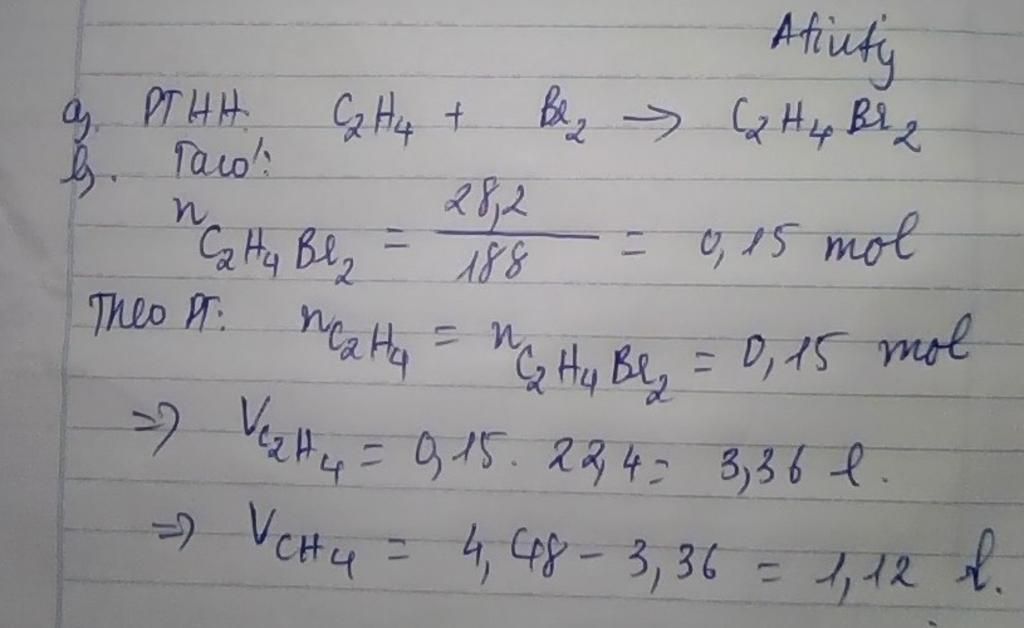 Afiufy
a, PTHH. C₂H₄ + Br₂ → C₂H₄Br₂
b, Ta có:
nC₂H₄Br₂ = 28,2 / 188 = 0,15 mol
Theo PT: nC₂H₄ = nC₂H₄Br₂ = 0,15 mol
⇒ VC₂H₄ = 0,15 . 22,4 = 3,36 l.
⇒ VCH₄ = 4,48 - 3,36 = 1,12 l.